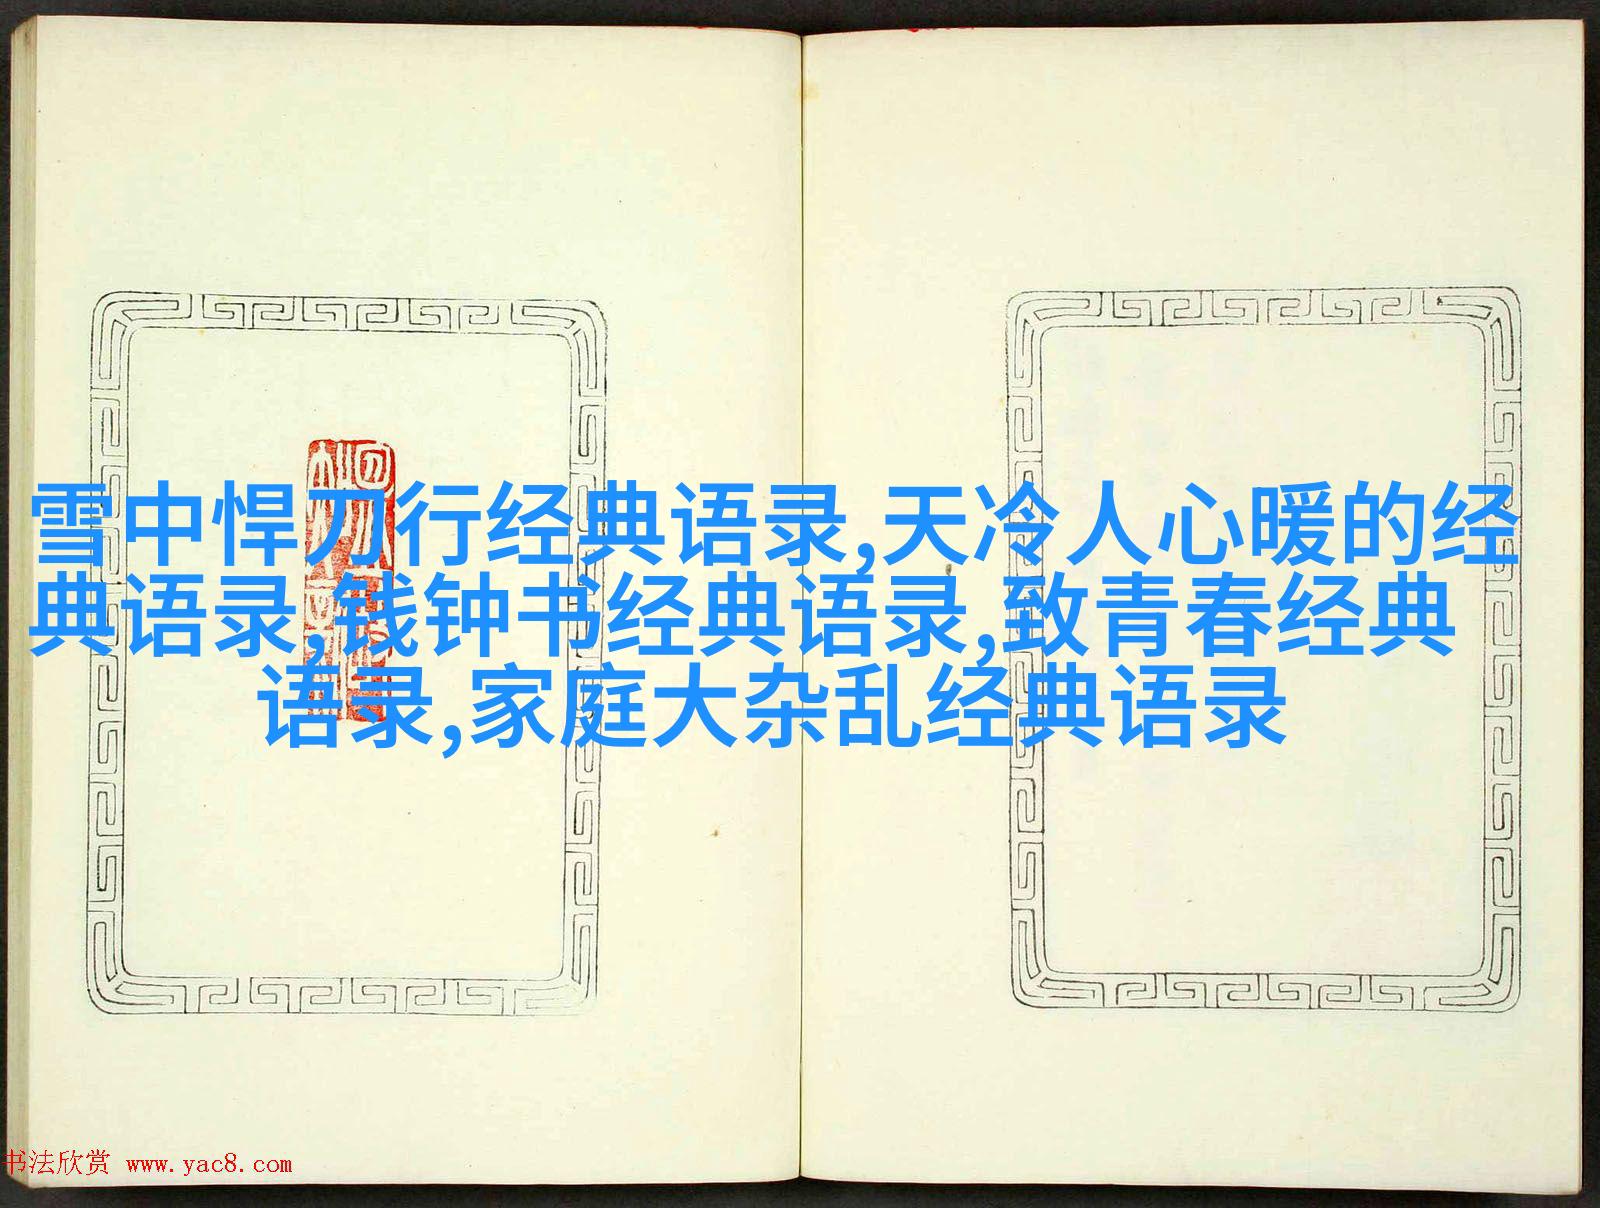 雪中悍刀行经典语录,天冷人心暖的经
典语录,钱钟书经典语录,致青春经典
语录,家庭大杂乱经典语录
书法欣赏 www.yac8.com